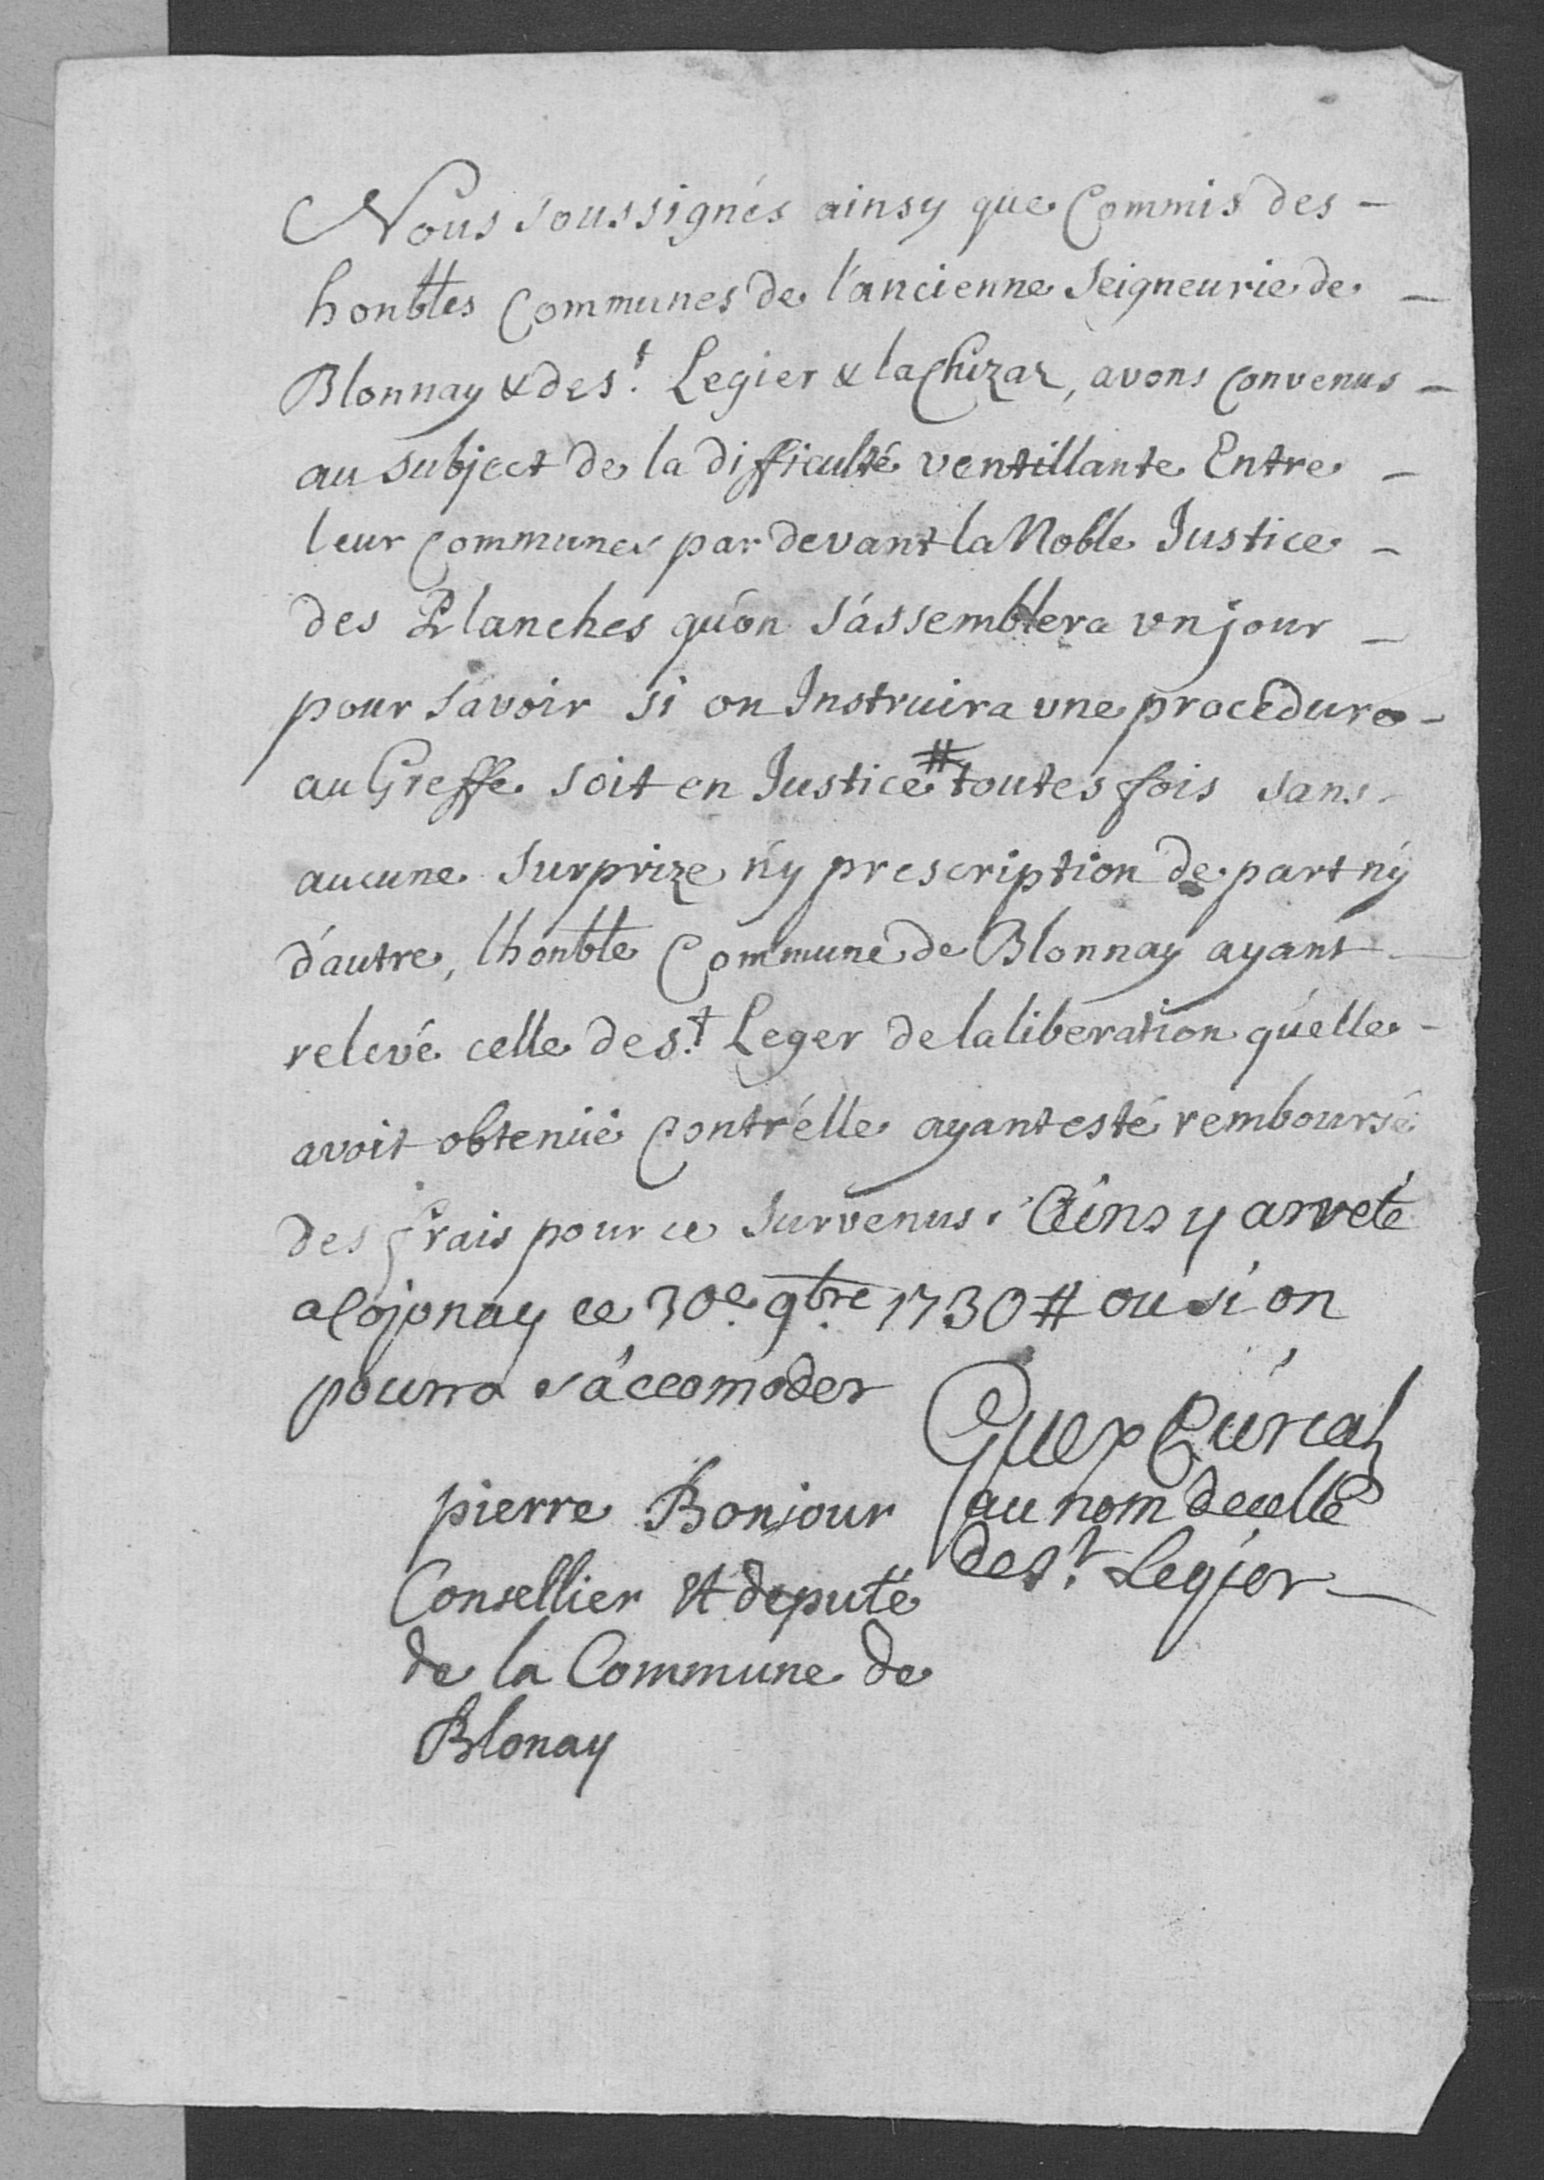 Nous soussignés ainsy que Commis des -
honbles Communes de l'ancienne Seigneurie de -
Blonnay & de st. Legier & la Chizaz, avons Convenus -
au subject de la difficulté ventillante Entre -
leur Communes par devant la Noble Justice -
des Planches qu'on s'assemblera un jour -
pour savoir si on Instruira une procedure -
au Greffe soit en Justice # toutes fois sans -
aucune surprize n'y prescription de part n'y
d'autre, lhonble Commune de Blonnay ayant
relevé celle de st. Leger de la liberation qu'elle -
avoit obtenüe Contr'elle ayant esté remboursé
des frais pour ce survenus. Ainsy arreté
a Cojonay ce 30e. 9bre 1730 # ou si on
pourra s'accomoder
Guex Curial
au nom de celle
de st. Legier
pierre Bonjour
Consellier Et deputé
de la Commune de
Blonay